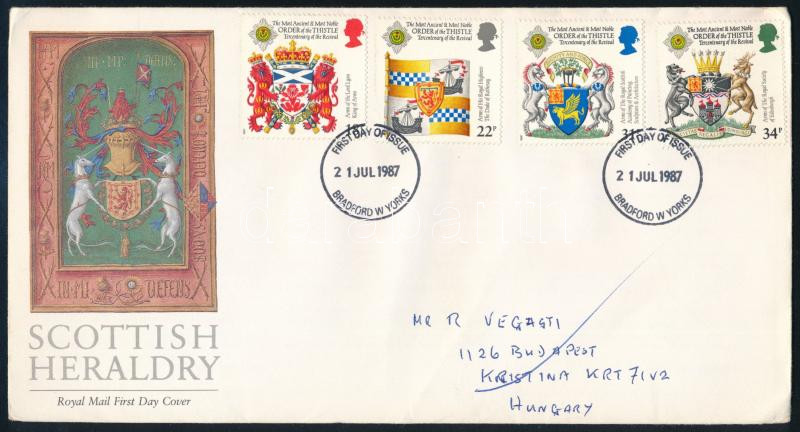 The Most Ancient & Most Noble
ORDER of the THISTLE
Tercentenary of the Revival
Arms of The Lord Lyon
King of Arms
The Most Ancient & Most Noble
ORDER of the THISTLE
Tercentenary of the Revival
Arms of His Royal Highness
The Duke of Rothesay
22P
The Most Ancient & Most Noble
ORDER of the THISTLE
Tercentenary of the Revival
Arms of The Royal Scottish
Academy of Painting,
Sculpture & Architecture
31P
The Most Ancient & Most Noble
ORDER of the THISTLE
Tercentenary of the Revival
Arms of The Royal Society
of Edinburgh
34P
FIRST DAY OF ISSUE
21 JUL 1987
BRADFORD W YORKS
FIRST DAY OF ISSUE
21 JUL 1987
BRADFORD W YORKS
IN·MI DEFENS
SCOTTISH
HERALDRY
Royal Mail First Day Cover
MR R VEGASTI
1126 BUDAPEST
KRISTINA KRT 71V2
HUNGARY